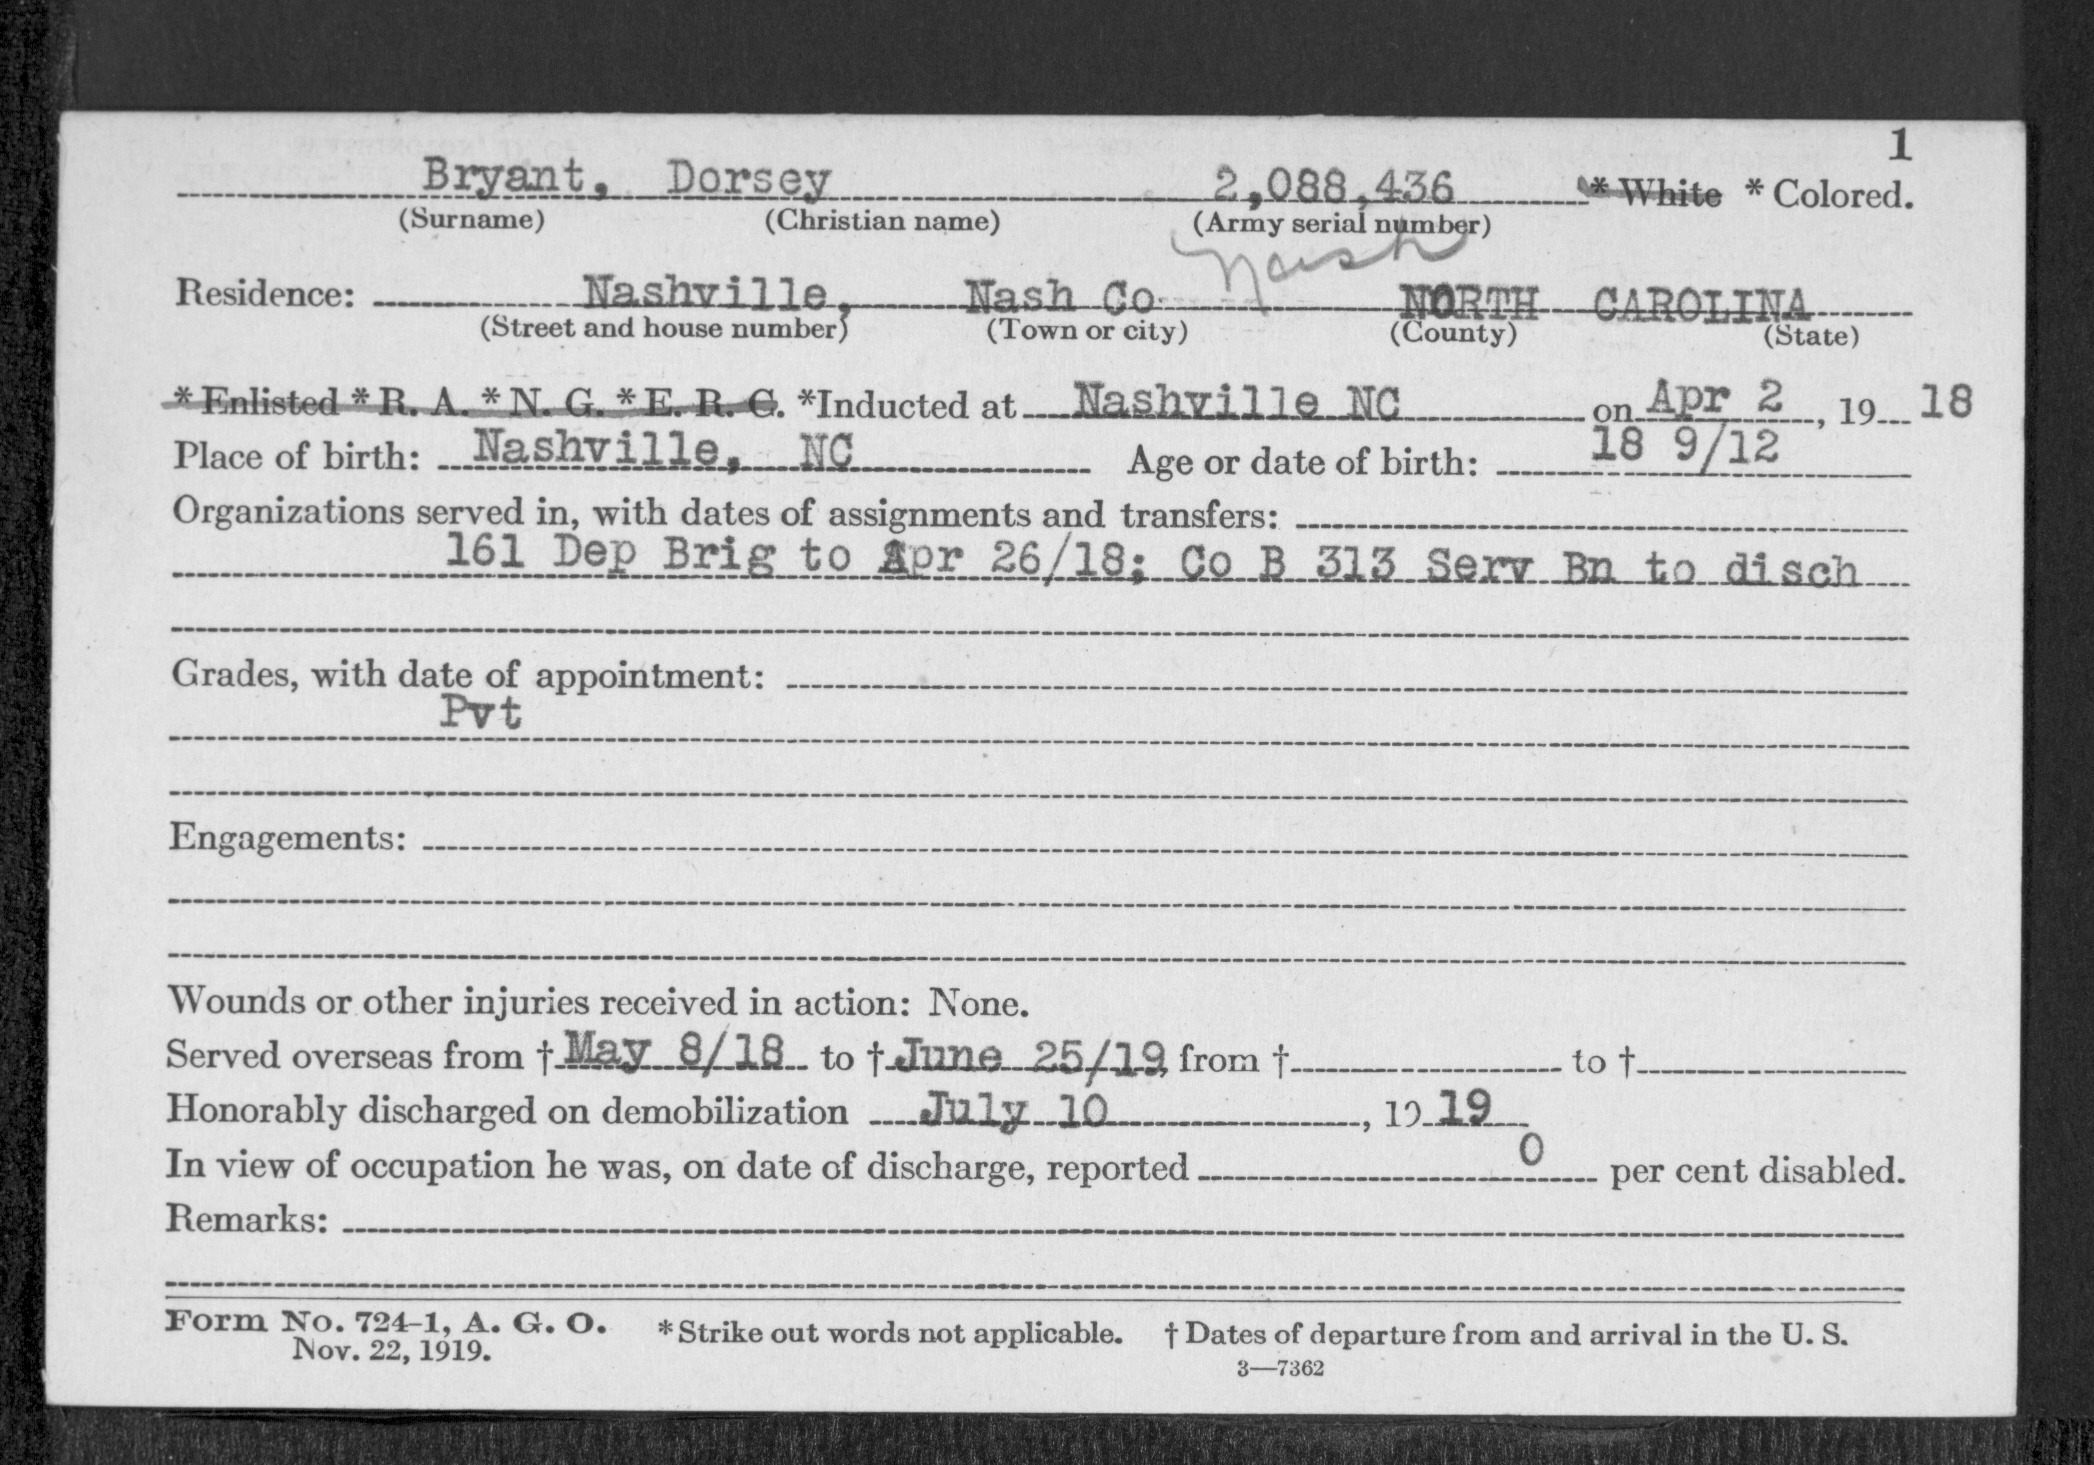 1
Bryant, Dorsey 2,088,436 * White * Colored.
(Surname) (Christian name) (Army serial number)
Nash
Residence: Nashville, Nash Co NORTH CAROLINA
(Street and house number) (Town or city) (County) (State)
* Enlisted * R. A. * N. G. * E. R. C. *Inducted at Nashville NC on Apr 2, 19 18
Place of birth: Nashville, NC Age or date of birth: 18 9/12
Organizations served in, with dates of assignments and transfers:
161 Dep Brig to Apr 26/18; Co B 313 Serv Bn to disch
Grades, with date of appointment:
Pvt
Engagements:
Wounds or other injuries received in action: None.
Served overseas from † May 8/18 to † June 25/19, from † to †
Honorably discharged on demobilization July 10, 19 19
In view of occupation he was, on date of discharge, reported 0 per cent disabled.
Remarks:
Form No. 724-1, A. G. O. * Strike out words not applicable. † Dates of departure from and arrival in the U. S.
Nov. 22, 1919.
3—7362